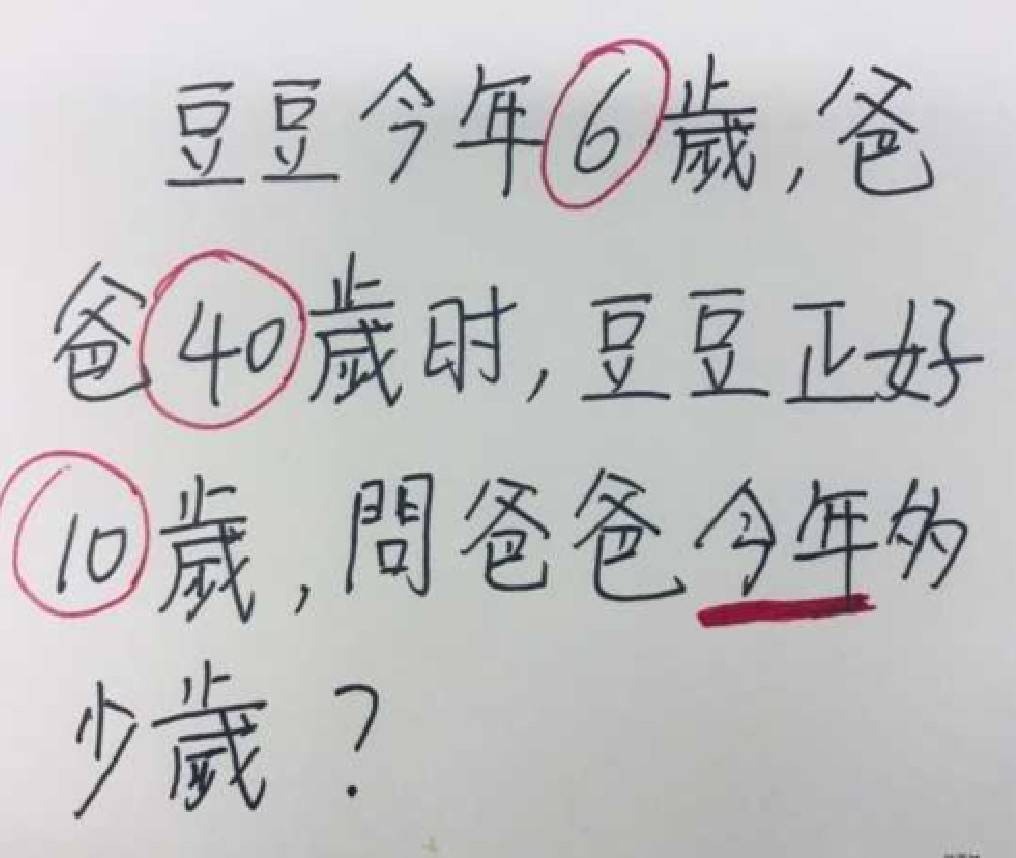 豆豆今年6歲,爸
爸40歲时,豆豆正好
10歲,問爸爸今年多
少歲?